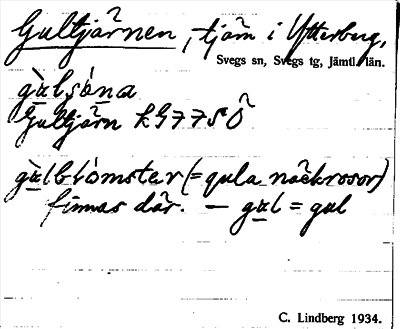 Gultjärnen, tjärn i Ytterberg,
Svegs sn, Svegs tg, Jämtl. län.
gùlsǻna
Gultjärn kG77SÖ
gùlblómster (= gula näckrosor)
finnas där. — gul = gul
C. Lindberg 1934.